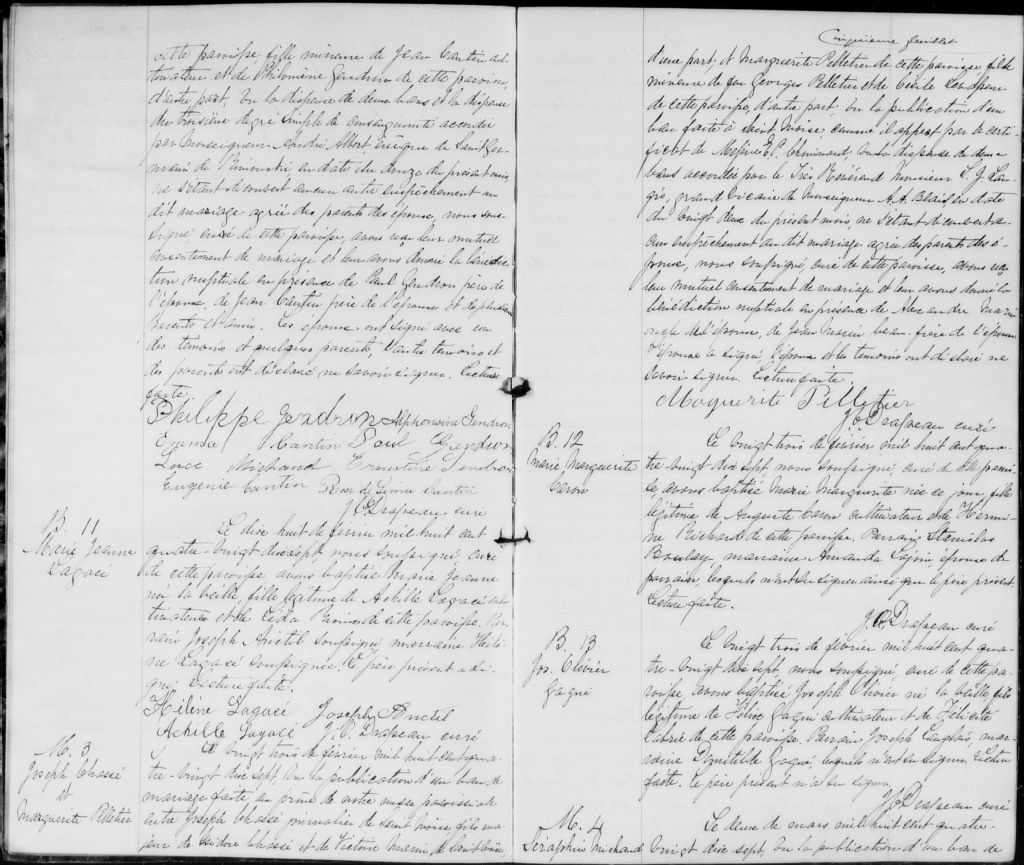 cette paroisse, fille mineure de Jean Cantin cul-
tivateur et de Philomène Gendron de cette paroisse,
d'autre part, Vu la dispense de deux bans et la dispense
du troisième degré simple de consanguinité accordée
par Monseigneur André Albert Evêque de Saint Ger-
main de Rimouski en date du onze du présent mois,
ne s'étant découvert aucun autre empêchement au
dit mariage agréé des parents des épouse, nous sous-
signé, curé de cette paroisse, avons reçu leur mutuel
consentement de mariage et leur avons donné la bénédic-
tion nuptiale en présence de Paul Gendron frère de
l'épouse, de Jean Cantin frère de l'épouse et de plusieurs
parents et amis. Les épouse ont signé avec un
des témoins et quelques parents, l'autre témoins et
des parents ont déclaré ne savoir signer. Lecture
faite.
Philippe Gendron Alphonsine Gendron
Emma Cantin Paul Gendron
Luce Michaud Ernestine Gendron
Eugenie Cantin Rose de Lima Cantin
J. C. Drapeau curé
B. 11
Marie Jeanne
Lagacé
Le dix huit de février mil huit cent
quatre-vingt dix sept, nous soussigné curé
de cette paroisse avons baptisé Marie Jeanne
née la veille, fille légitime de Achille Lagacé cul-
tivateur et de Léda de cette paroisse. Par-
rain Joseph Anctil soussigné, marraine Hélè-
ne Lagacé soussignée. Le père présent a si-
gné. Lecture faite.
Hélène Lagacé Joseph Anctil
Achille Lagacé J. C. Drapeau curé
M. 3
Joseph Chassé
et
Marguerite Pelletier
Le vingt trois de février mil huit cent qua-
tre-vingt dix sept, Vu la publication d'un ban de
mariage faite au prône de notre messe paroissiale
entre Joseph Chassé journalier de Saint Moïse, fils ma-
jeur de Isidore Chassé et de Victoire Marin de Saint Moïse,
Cinquième feuillet
d'une part, et Marguerite Pelletier de cette paroisse, fille
mineure de feu Georges Pelletier et de Cécile
de cette paroisse, d'autre part, Vu la publication d'un
ban faite à Saint Moïse, comme il appert par le certi-
ficat de Messire E. P. Chouinard, Vu la dispense de deux
bans accordée par le Très Révérend monsieur L. J. Lan-
gis, grand Vicaire de Monseigneur A. A. Blais en date
du vingt deux du présent mois, ne s'étant découvert au-
cun empêchement au dit mariage agréé des parents des é-
pouse, nous soussigné, curé de cette paroisse, avons reçu
leur mutuel consentement de mariage et leur avons donné la
bénédiction nuptiale en présence de Alexandre Marin
oncle de l'épouse, de Jean Marin beau-frère de l'épouse
L'épouse a signé, l'épouse et les témoins ont déclaré ne
savoir signer. Lecture faite.
Moguerite Pelletier
J. C. Drapeau curé
B. 12
Marie Marguerite
Caron
Le vingt trois de février mil huit cent qua-
tre-vingt dix sept nous soussigné, curé de cette parois-
se, avons baptisé Marie Marguerite née ce jour, fille
légitime de Auguste Caron cultivateur et de Hermi-
ne Richard de cette paroisse. Parrain Stanislas
Boulay, marraine Amanda Lajoie épouse du
parrain, lesquels n'ont su signer ainsi que le père présent
Lecture faite.
J. C. Drapeau curé
B. 13
Jos. Olivier
Gagné
Le vingt trois de février mil huit cent qua-
tre-vingt dix sept, nous soussigné, curé de cette pa-
roisse avons baptisé Joseph Olivier né la veille fils
légitime de Félix Gagné cultivateur et de Félicité
de cette paroisse. Parrain Joseph Langlais, mar-
raine Domitilde Gagné, lesquels n'ont su signer. Lecture
faite. Le père présent n'a su signer
J. C. Drapeau curé
M. 4
Séraphin Michaud
Le deux de mars mil huit cent quatre-
vingt dix sept, Vu la publication d'un ban de